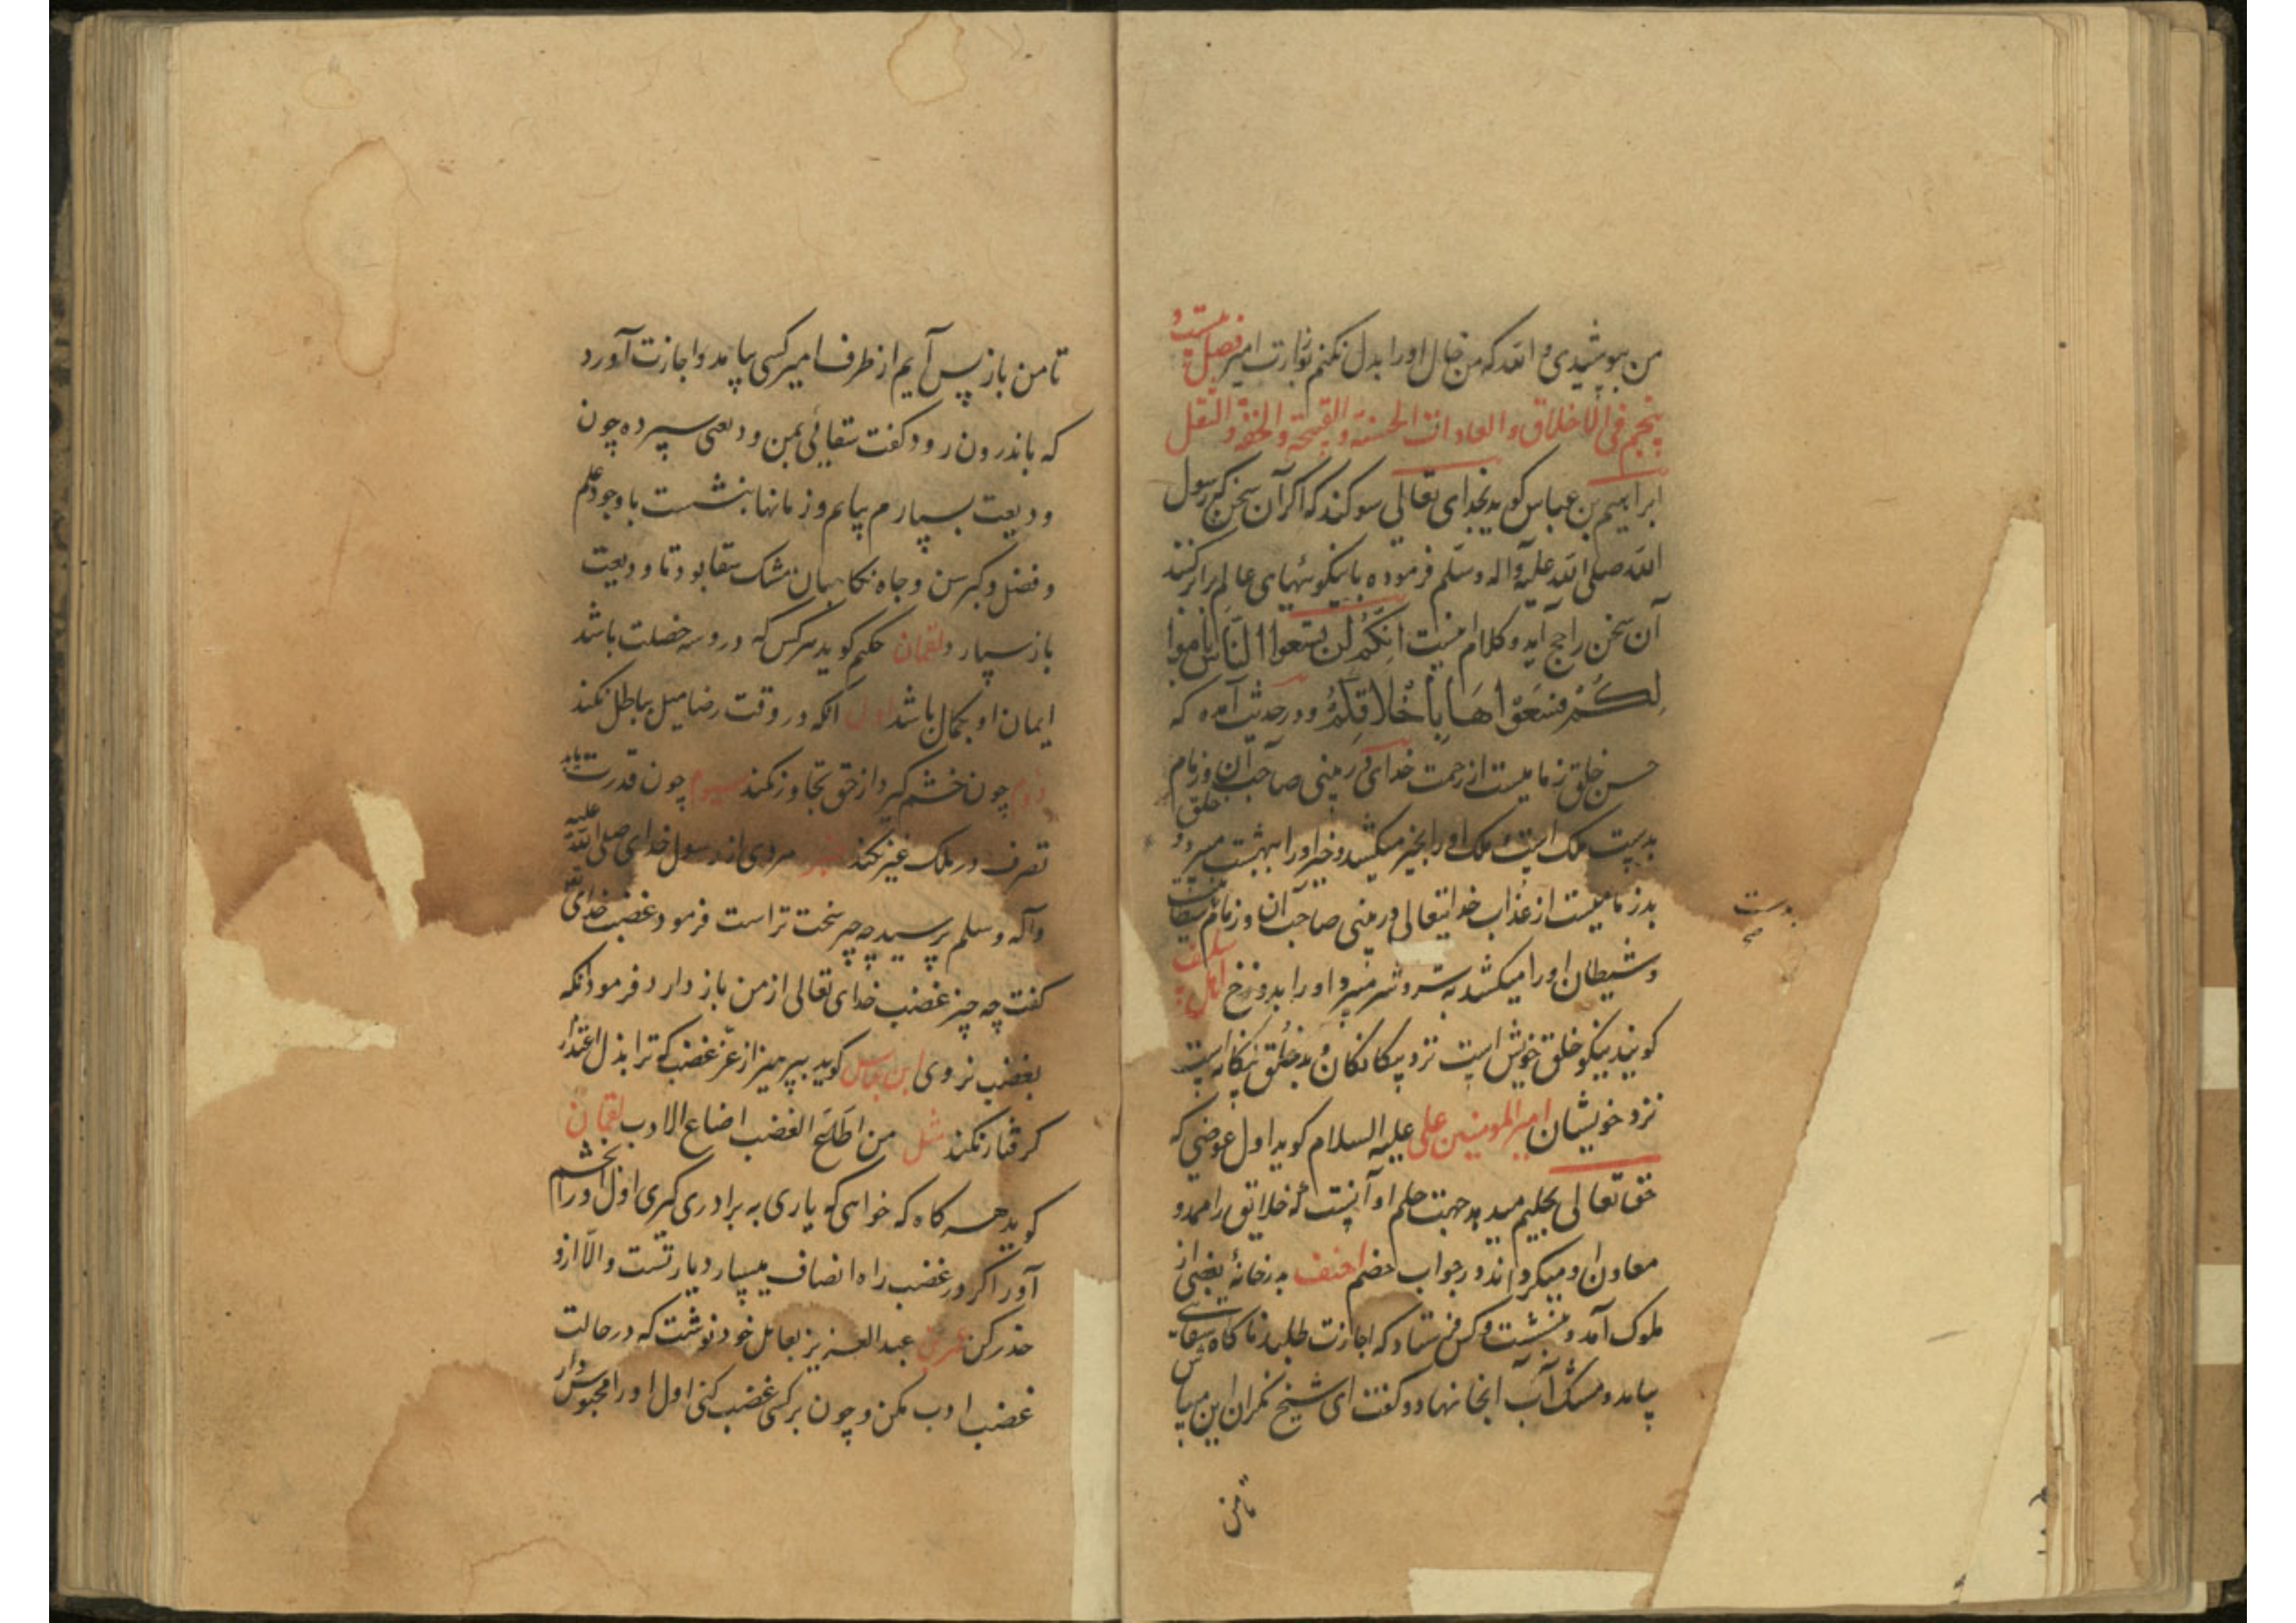 من بپوشیدی و الله که من خیال او را بدل نکنم توبازت امیر فصل بیست و
پنجم فی الاخلاق و العادات الحسنة و القبیحة و الخفة و الثقل
ابراهیم بن عباس کوید بخدای تعالی سوکند که اکر آن سخن که رسول
الله صلی الله علیه و آله و سلم فرموده با نیکوئیهای عالم برابر کنند
آن سخن راجح آید و کلام اینست انکم لن تسعوا الناس باموا
لکم فسعوا هاباخلاقکم و در حدیث آمده که
حسن خلق زمامیست از رحمت خدای در بینی صاحب آن و زمام
بدست ملک است و ملک او را بخیر میکشد و خیر او را ببهشت میبرد و خلق
بد زمامیست از عذاب خدایتعالی در بینی صاحب آن و زمام بدست شیطانست
و شیطان او را میکشد بشر و شر میبرد او را بدوزخ اهل سلف
کویند نیکو خلق خویش است نزد بیکانکان و بد خلق بیکانه است
نزد خویشان امیر المومنین علی علیه السلام کوید اول عوضی که
حق تعالی بحلیم میدهد جهت حلم او آنست که خلایق را ممد و
معاون او میکرداند در جواب خصم احنف بدر خانهٔ بعضی از
ملوک آمد و بنشست و کس فرستاد که اجازت طلبد ناکاه سقائے
بیامد و مشک آب آنجا نهاد و کفت ای شیخ نکران این میباش
تا من
تا من باز پس آیم از طرف امیر کسی بیامد و اجازت آورد
که باندرون رود کفت سقائی بمن ودیعتی سپرده چون
ودیعت بسپارم بیایم و زمانها بنشست با وجود علم
و فضل و کبر سن و جاه نکاهبان مشک سقا بود تا ودیعت
باز سپارد لقمان حکیم کوید هرکس که در و سه خصلت باشد
ایمان او بکمال باشد اول آنکه در وقت رضا میل بباطل نکند
دوم چون خشم کیرد از حق تجاوز نکند سیوم چون قدرت یابد
تصرف در ملک غیر نکند مردی از رسول خدای صلی الله علیه
و آله و سلم پرسید چه چیز سخت تر است فرمود غضب خدای تع
کفت چه چیز غضب خدای تعالی از من باز دارد فرمود آنکه
بغضب نروی ابن عباس کوید بپرهیز از عز غضب که ترا بذل اعتذار
کرفتار نکند مثل من اطاع الغضب اضاع الادب لقمان
کوید هر کاه که خواهی که یاری به برادری کیری اول او را بخشم
آور اکر در غضب راه انصاف میسپارد یار تست و الّا ازو
حذر کن عمر بن عبد العزیز بعامل خود نوشت که در حالت
غضب ادب مکن و چون بر کسی غضب کنی اول او را محبوس دار